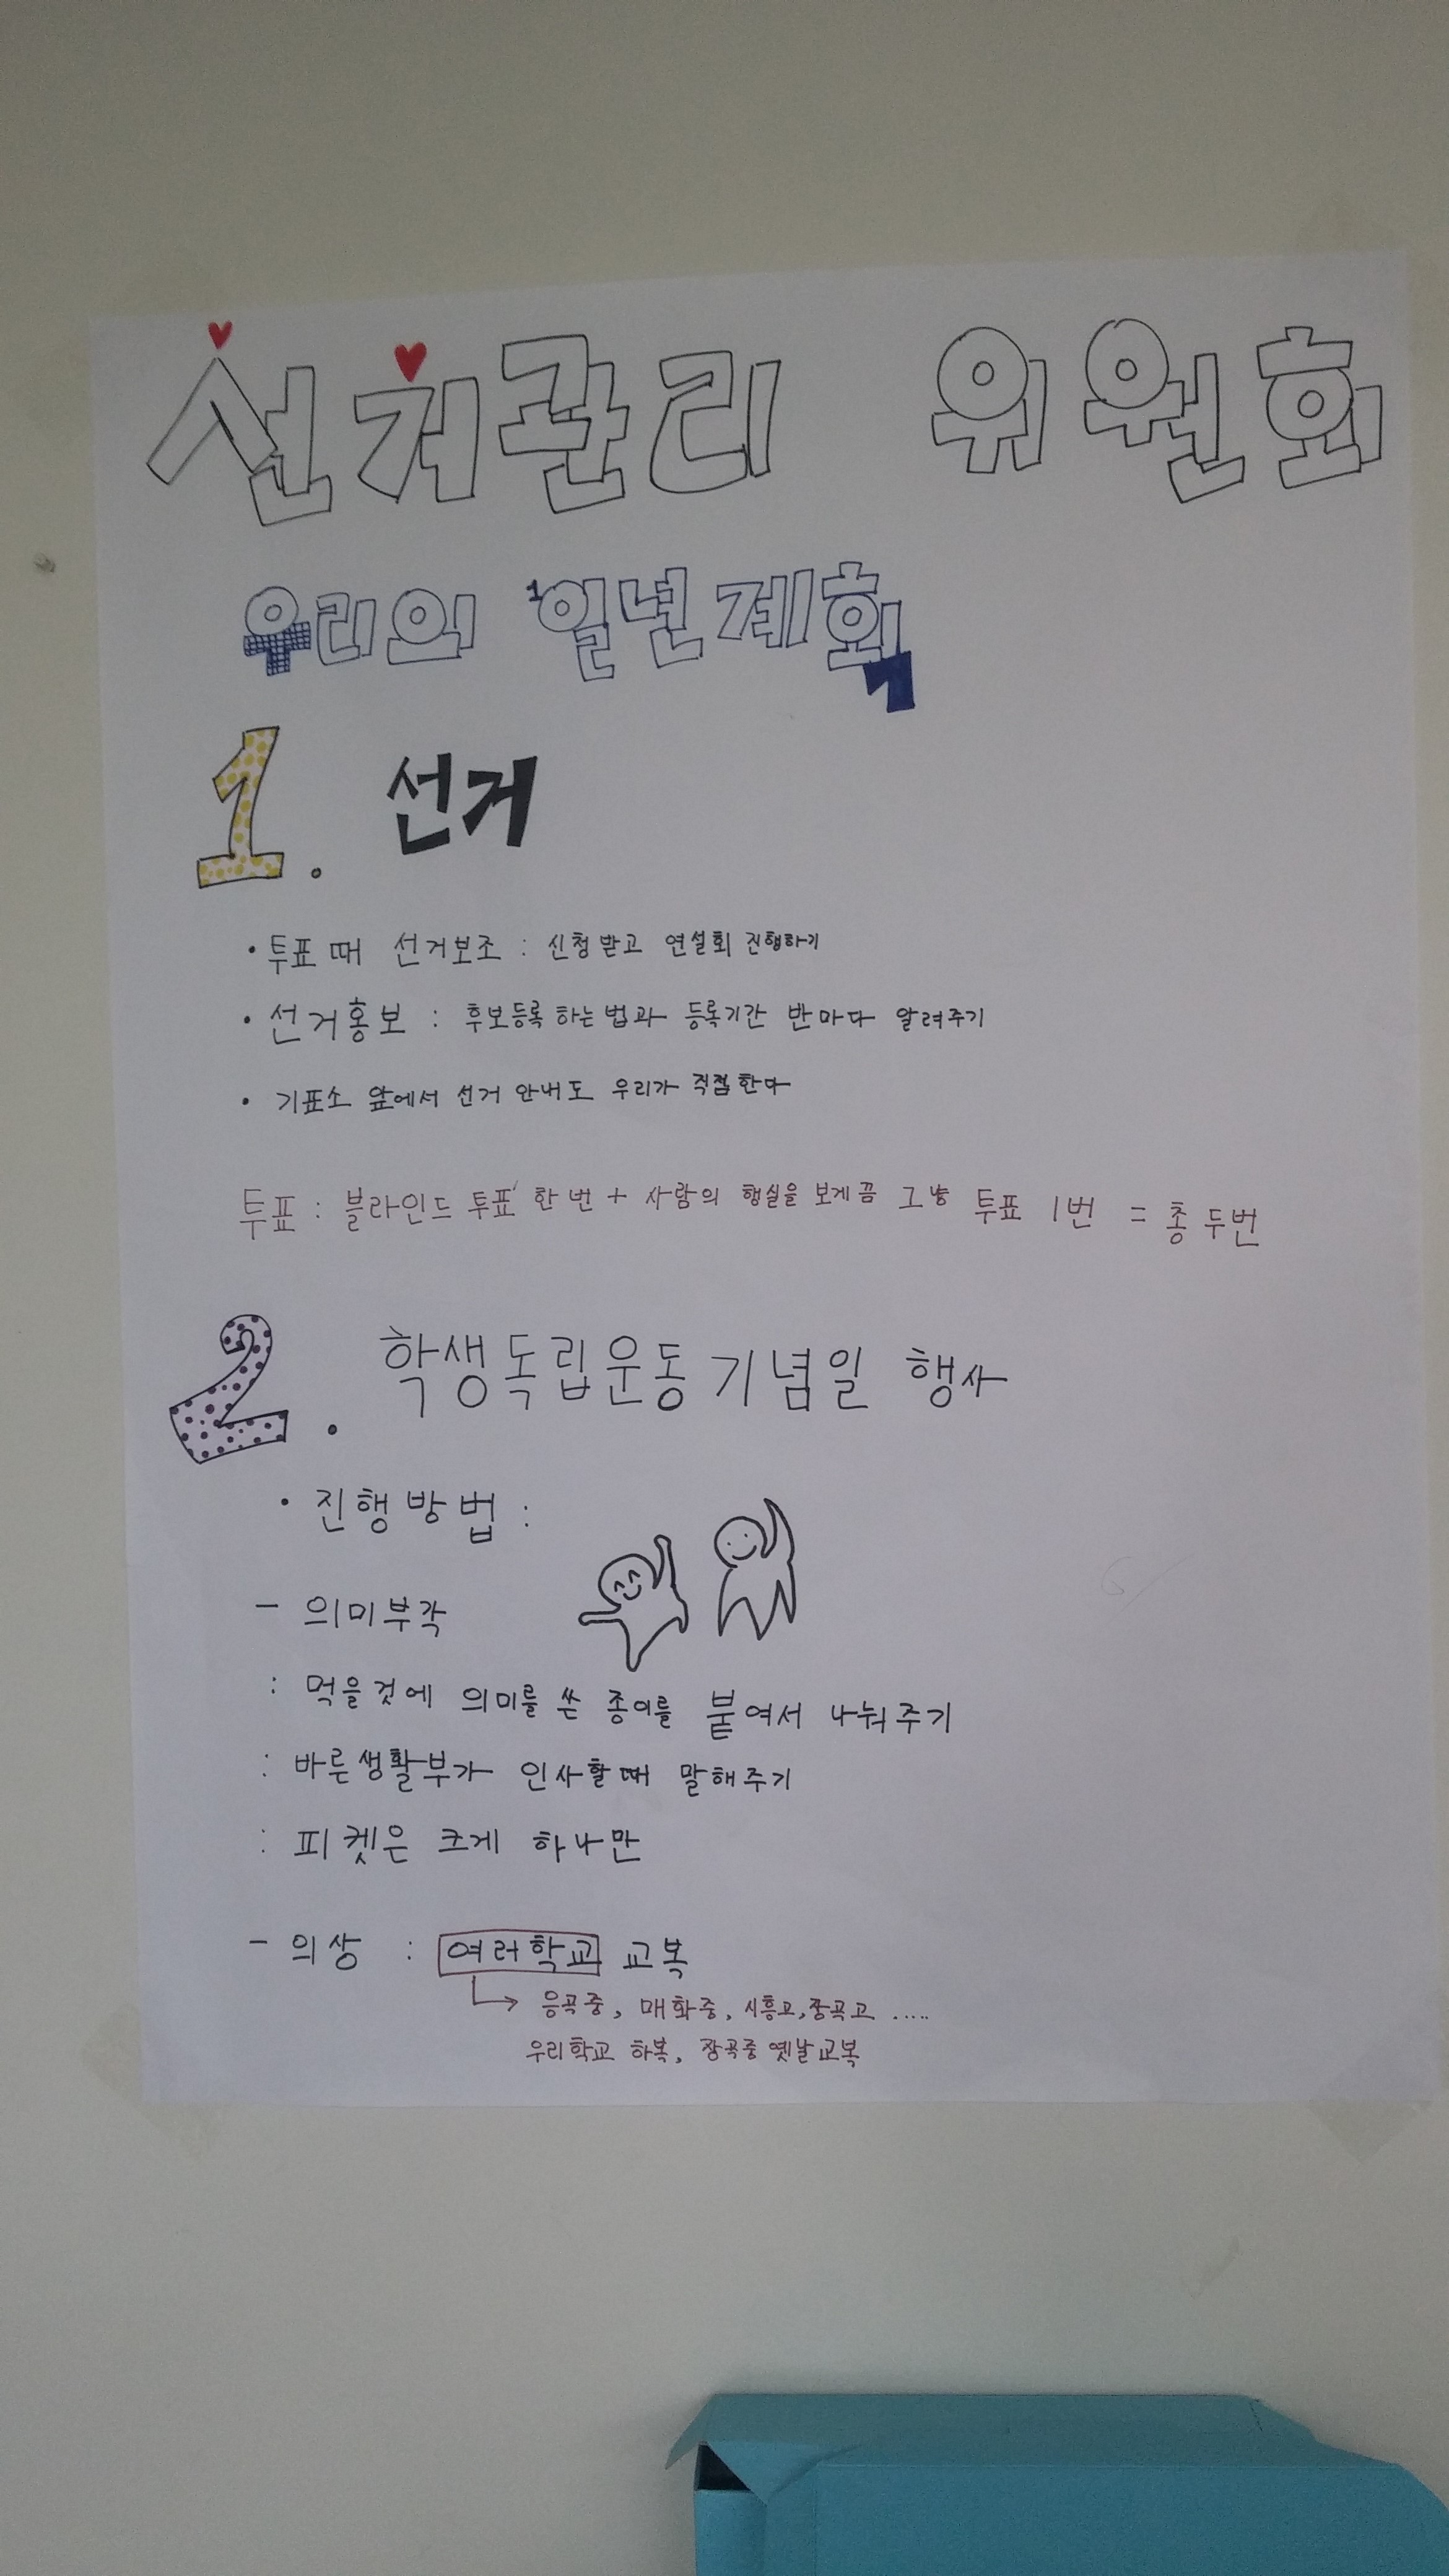 선거관리 위원회
우리의 일년계획
1. 선거
• 투표 때 선거보조 : 신청받고 연설회 진행하기
• 선거홍보 : 후보등록 하는법과 등록기간 반마다 알려주기
• 기표소 앞에서 선거 안내도 우리가 직접한다
투표 : 블라인드 투표 한번 + 사람의 행실을 보게끔 그냥 투표 1번 = 총 두번
2. 학생독립운동기념일 행사
• 진행방법 :
- 의미부각
: 먹을것에 의미를 쓴 종이를 붙여서 나눠주기
: 바른생활부가 인사할때 말해주기
: 피켓은 크게 하나만
- 의상 : 여러학교 교복
→ 응곡중, 매화중, 시흥고, 장곡고 .....
우리학교 하복, 장곡중 옛날교복